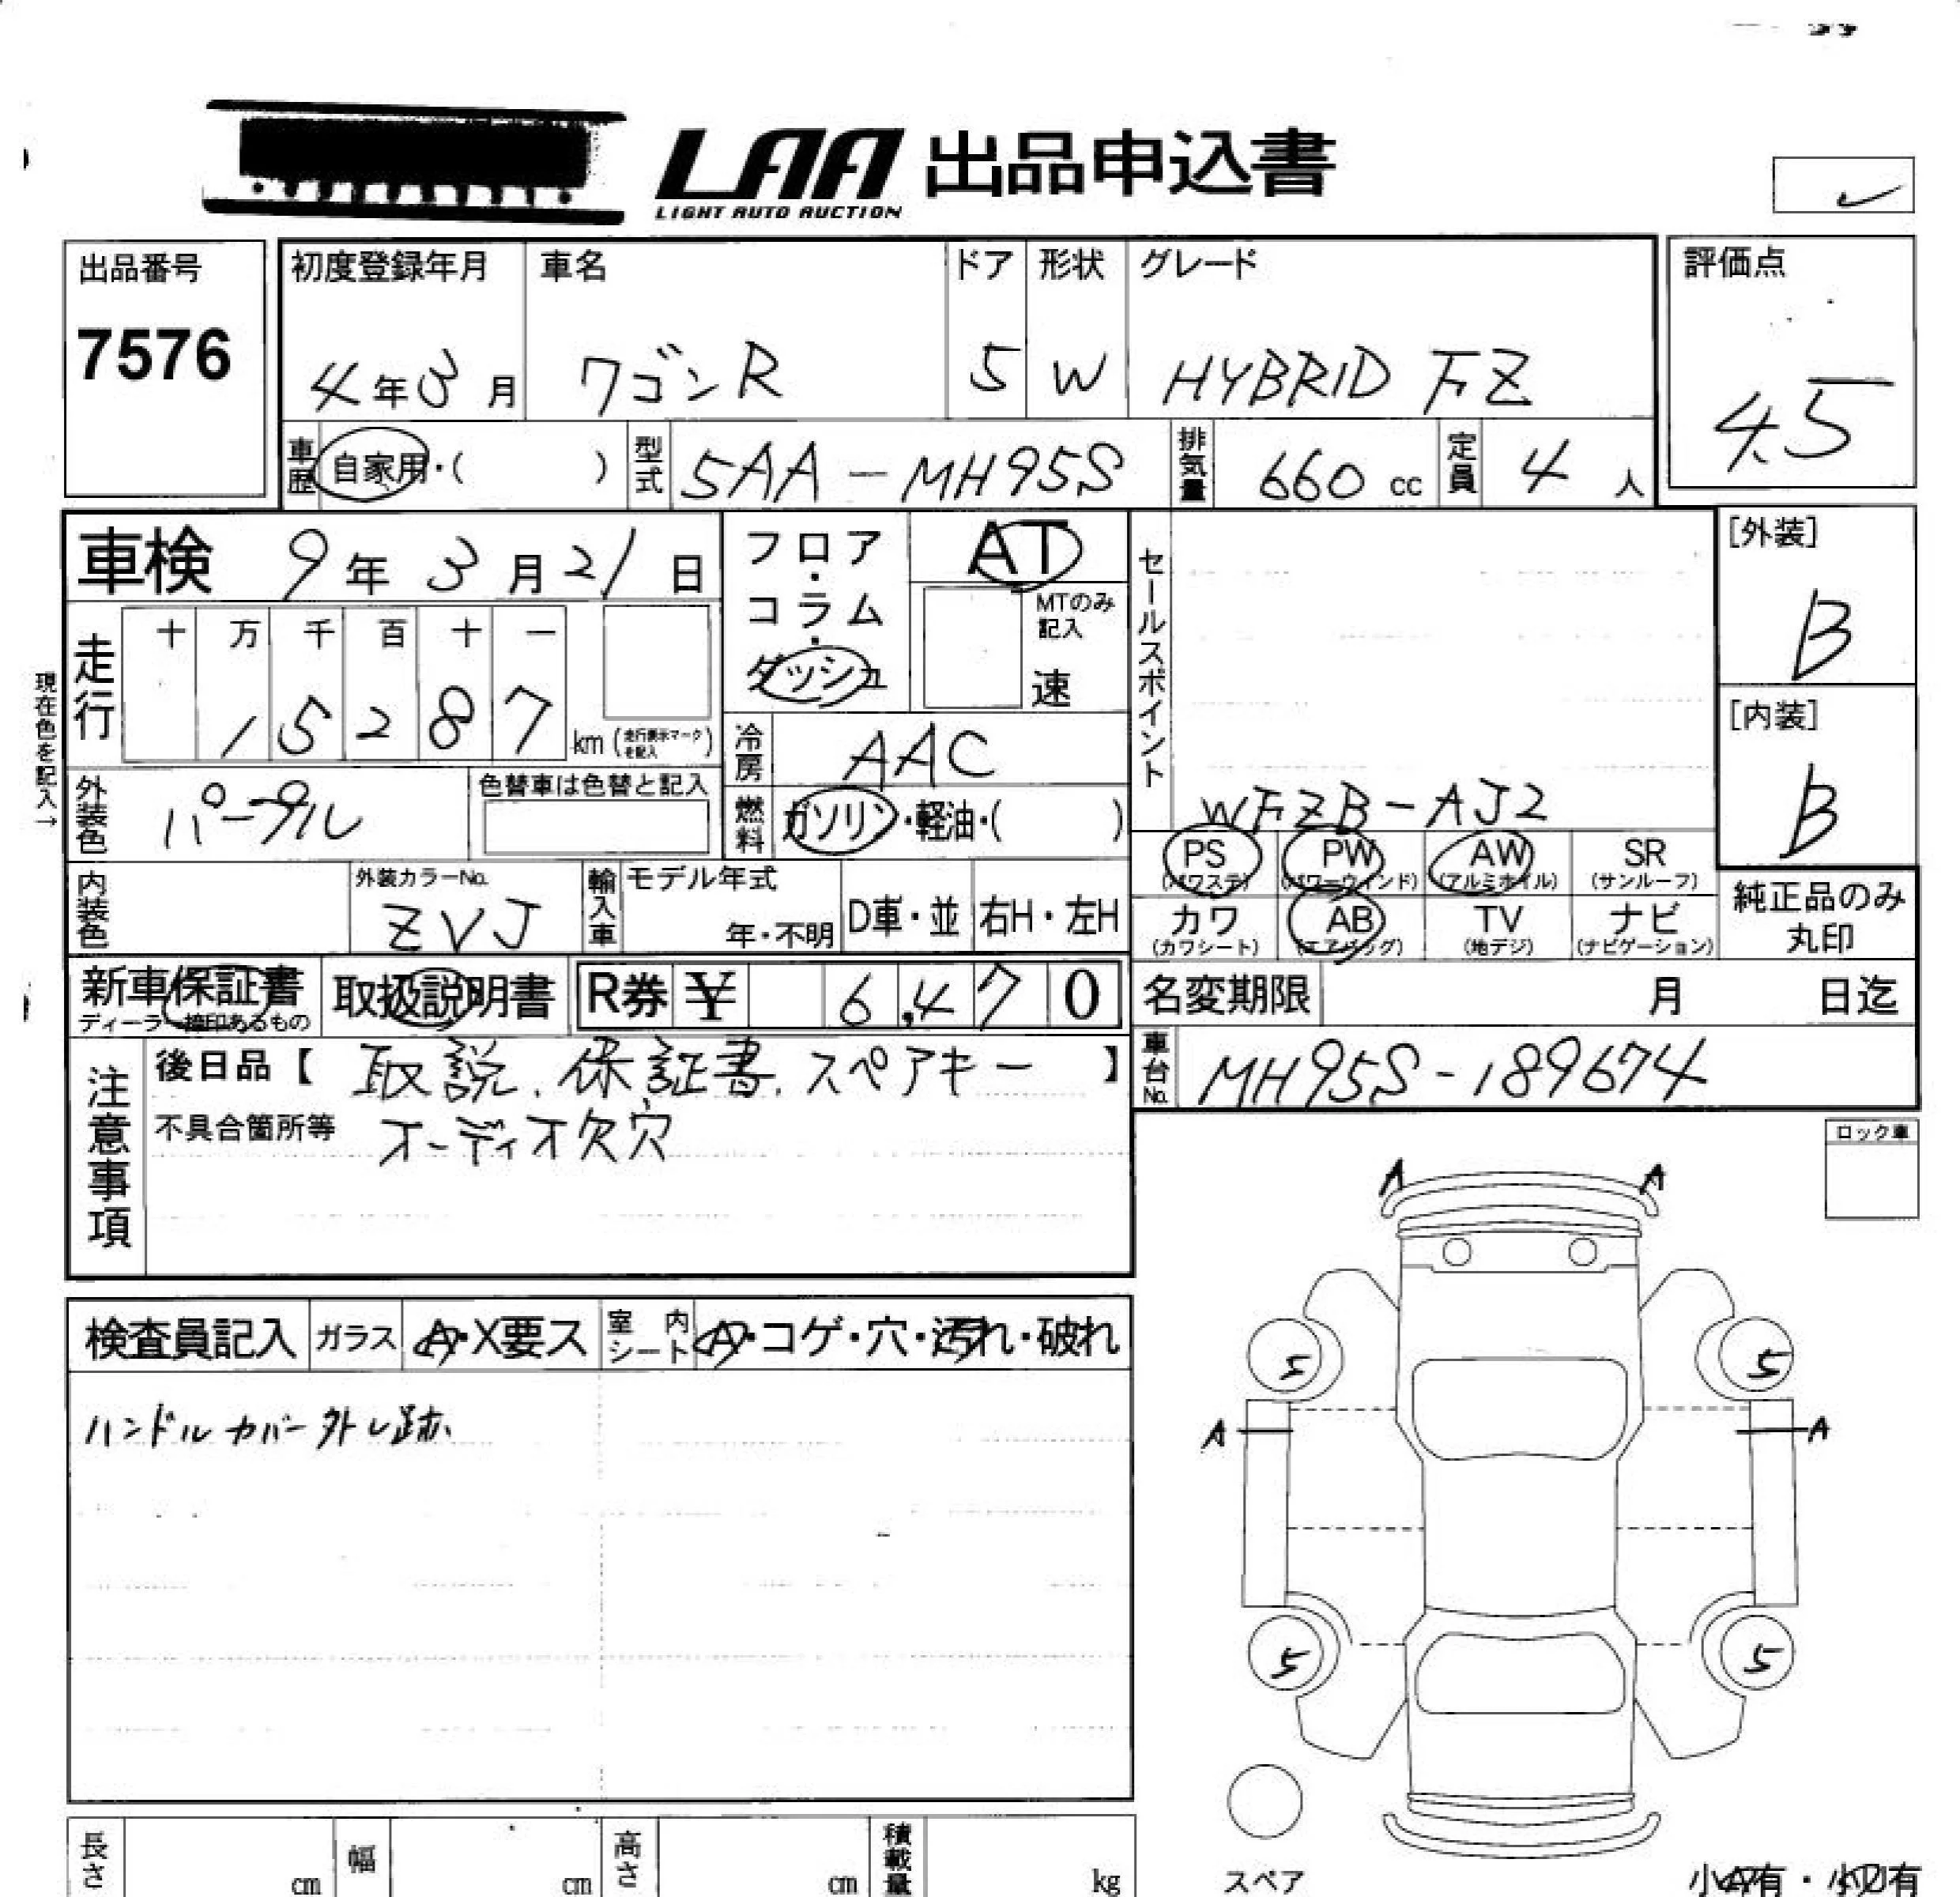 LAA 出品申込書
LIGHT AUTO AUCTION
出品番号
7576
初度登録年月
4年3月
車名
ワゴンR
ドア
5
形状
W
グレード
HYBRID FZ
評価点
4.5
車歴
自家用・( )
型式
5AA-MH95S
排気量
660 cc
定員
4 人
車検 9年3月21日
フロア・コラム・ダッシュ
AT
MTのみ記入
速
セールスポイント
WFZB-AJ2
[外装]
B
[内装]
B
現在色を記入→
走行
十 万 千 百 十 一
1 5 2 8 7 km (走行表示マークを記入)
冷房
AAC
外装色
パープル
色替車は色替と記入
燃料
ガソリン・軽油・( )
内装色
外装カラーNo.
ZVJ
輸入車
モデル年式
年・不明
D車・並
右H・左H
PS (パワステ)
PW (パワーウィンド)
AW (アルミホイル)
SR (サンルーフ)
カワ (カワシート)
AB (エアバッグ)
TV (地デジ)
ナビ (ナビゲーション)
純正品のみ
丸印
新車保証書
ディーラー捺印あるもの
取扱説明書
R券 ¥ 6,470
名変期限 月 日迄
車台No.
MH95S-189674
注意事項
後日品【取説、保証書、スペアキー】
不具合箇所等 オーディオ欠穴
ロック車
検査員記入
ガラス
A・X要ス
室内シート
A・コゲ・穴・汚れ・破れ
ハンドルカバー外し跡
A A
5 5
A A
5 5
スペア
小A有・小U有
長さ cm
幅 cm
高さ cm
積載量 kg